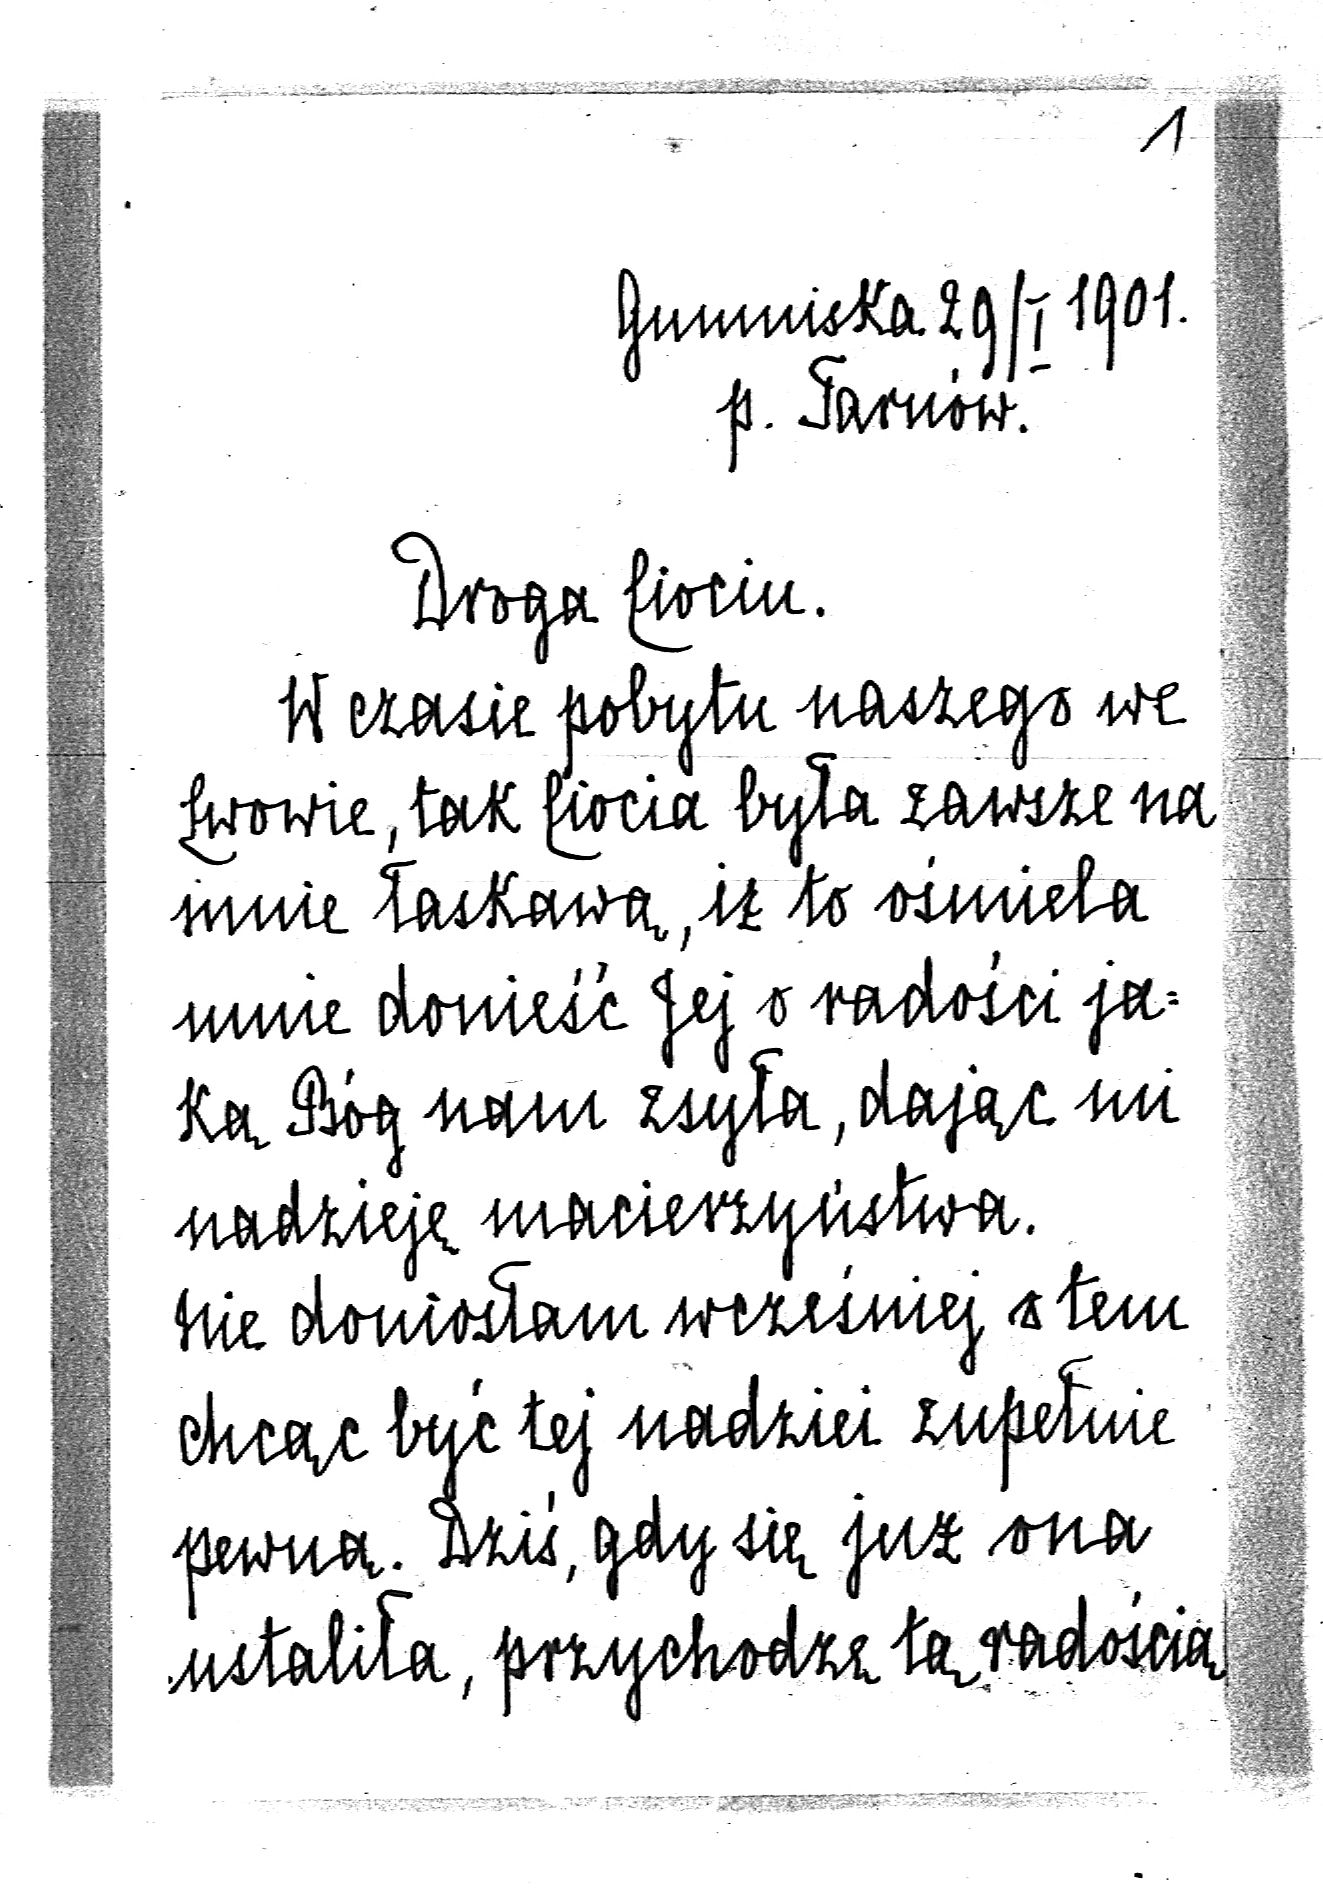 1
Gumniska 29/I 1901.
p. Tarnów.
Droga Ciociu.
W czasie pobytu naszego we
Lwowie, tak Ciocia była zawsze na
mnie łaskawą, iż to ośmiela
mnie donieść Jej o radości ja=
ką Bóg nam zsyła, dając mi
nadzieję macierzyństwa.
Nie doniosłam wcześniej o tem
chcąc być tej nadziei zupełnie
pewną. Dziś, gdy się już ona
ustaliła, przychodzę tą radością